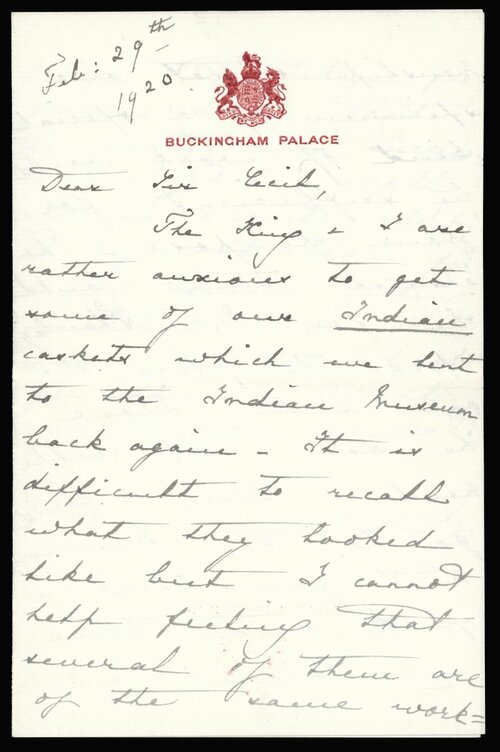 Feb: 29th
1920.
BUCKINGHAM PALACE
Dear Sir Cecil,
The King & I are
rather anxious to get
some of our Indian
caskets which we lent
to the Indian Museum
back again - It is
difficult to recall
what they looked
like but I cannot
help feeling that
several of them are
of the same work=